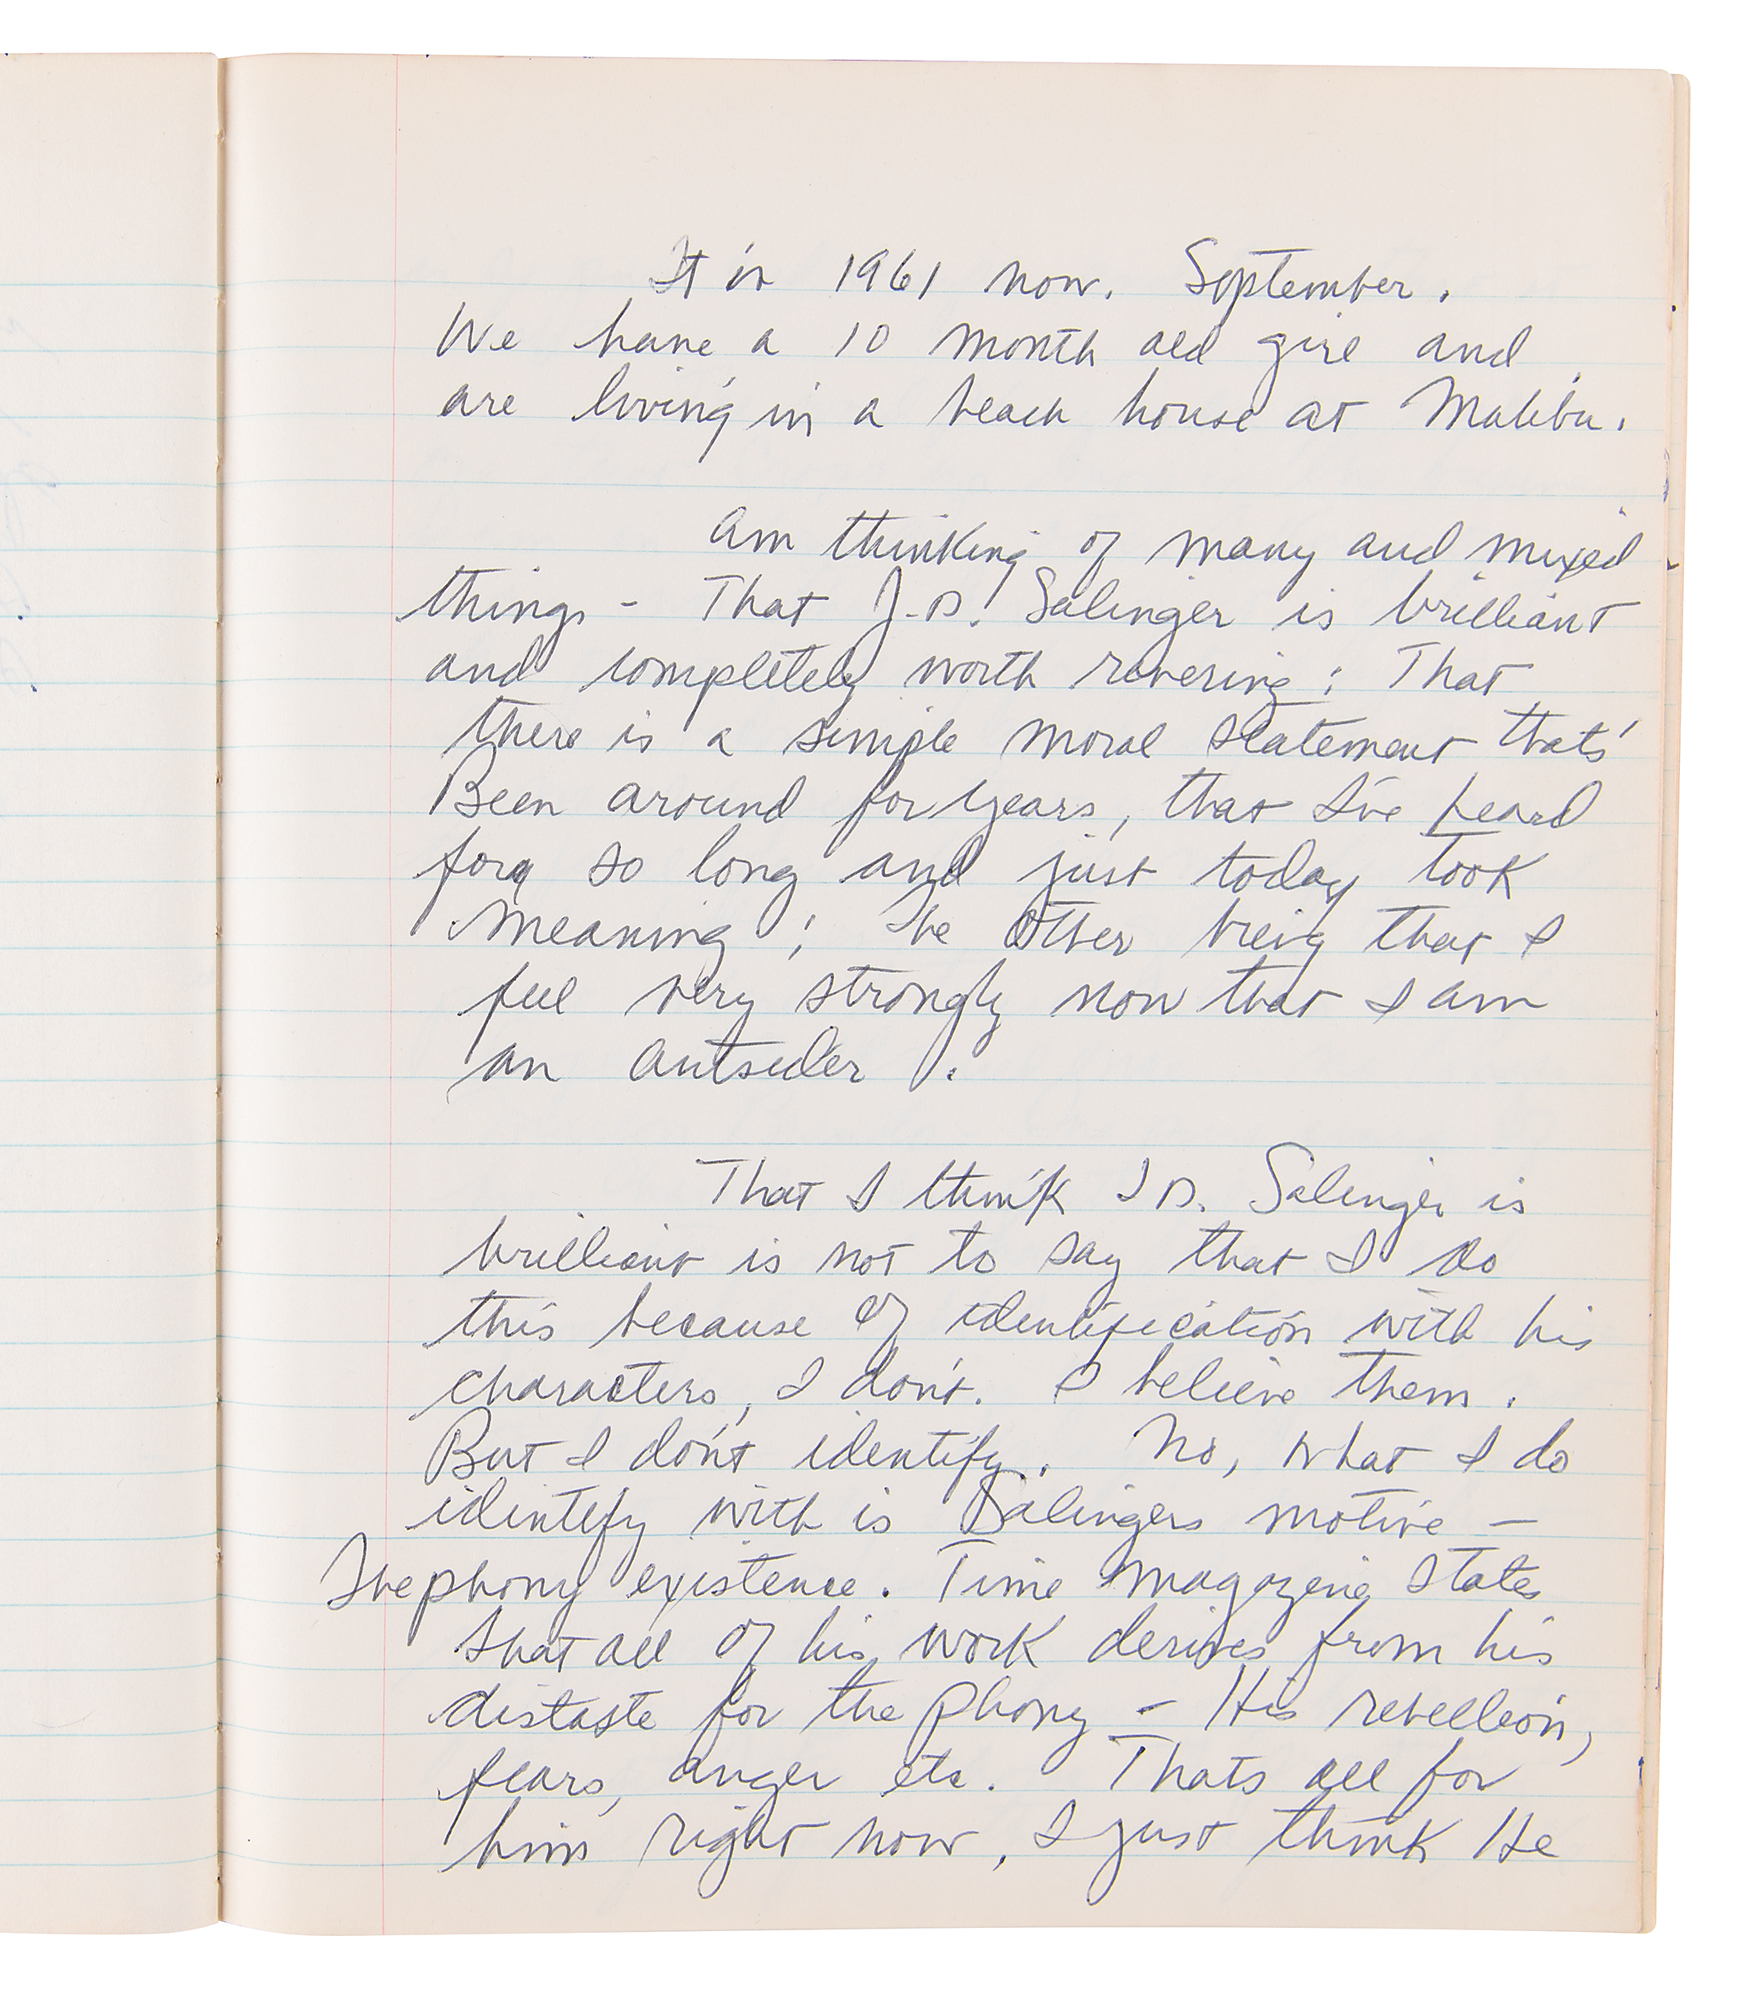 It is 1961 now. September.
We have a 10 month old girl and
are living in a beach house at Malibu.
Am thinking of many and mixed
things - That J.D. Salinger is brilliant
and completely worth revering; That
there is a simple moral statement thats'
Been around for years, that I've heard
for so long and just today took
meaning; the other being that I
feel very strongly now that I am
an outsider.
That I think J D. Salinger is
brilliant is not to say that I do
this because of identification with his
characters, I don't. I believe them.
But I don't identify. No, what I do
identify with is Salingers motive –
The phony existence. Time magazine states
that all of his work derives from his
distaste for the phony – His rebellion,
fears, anger etc. Thats all for
him right now, I just think He